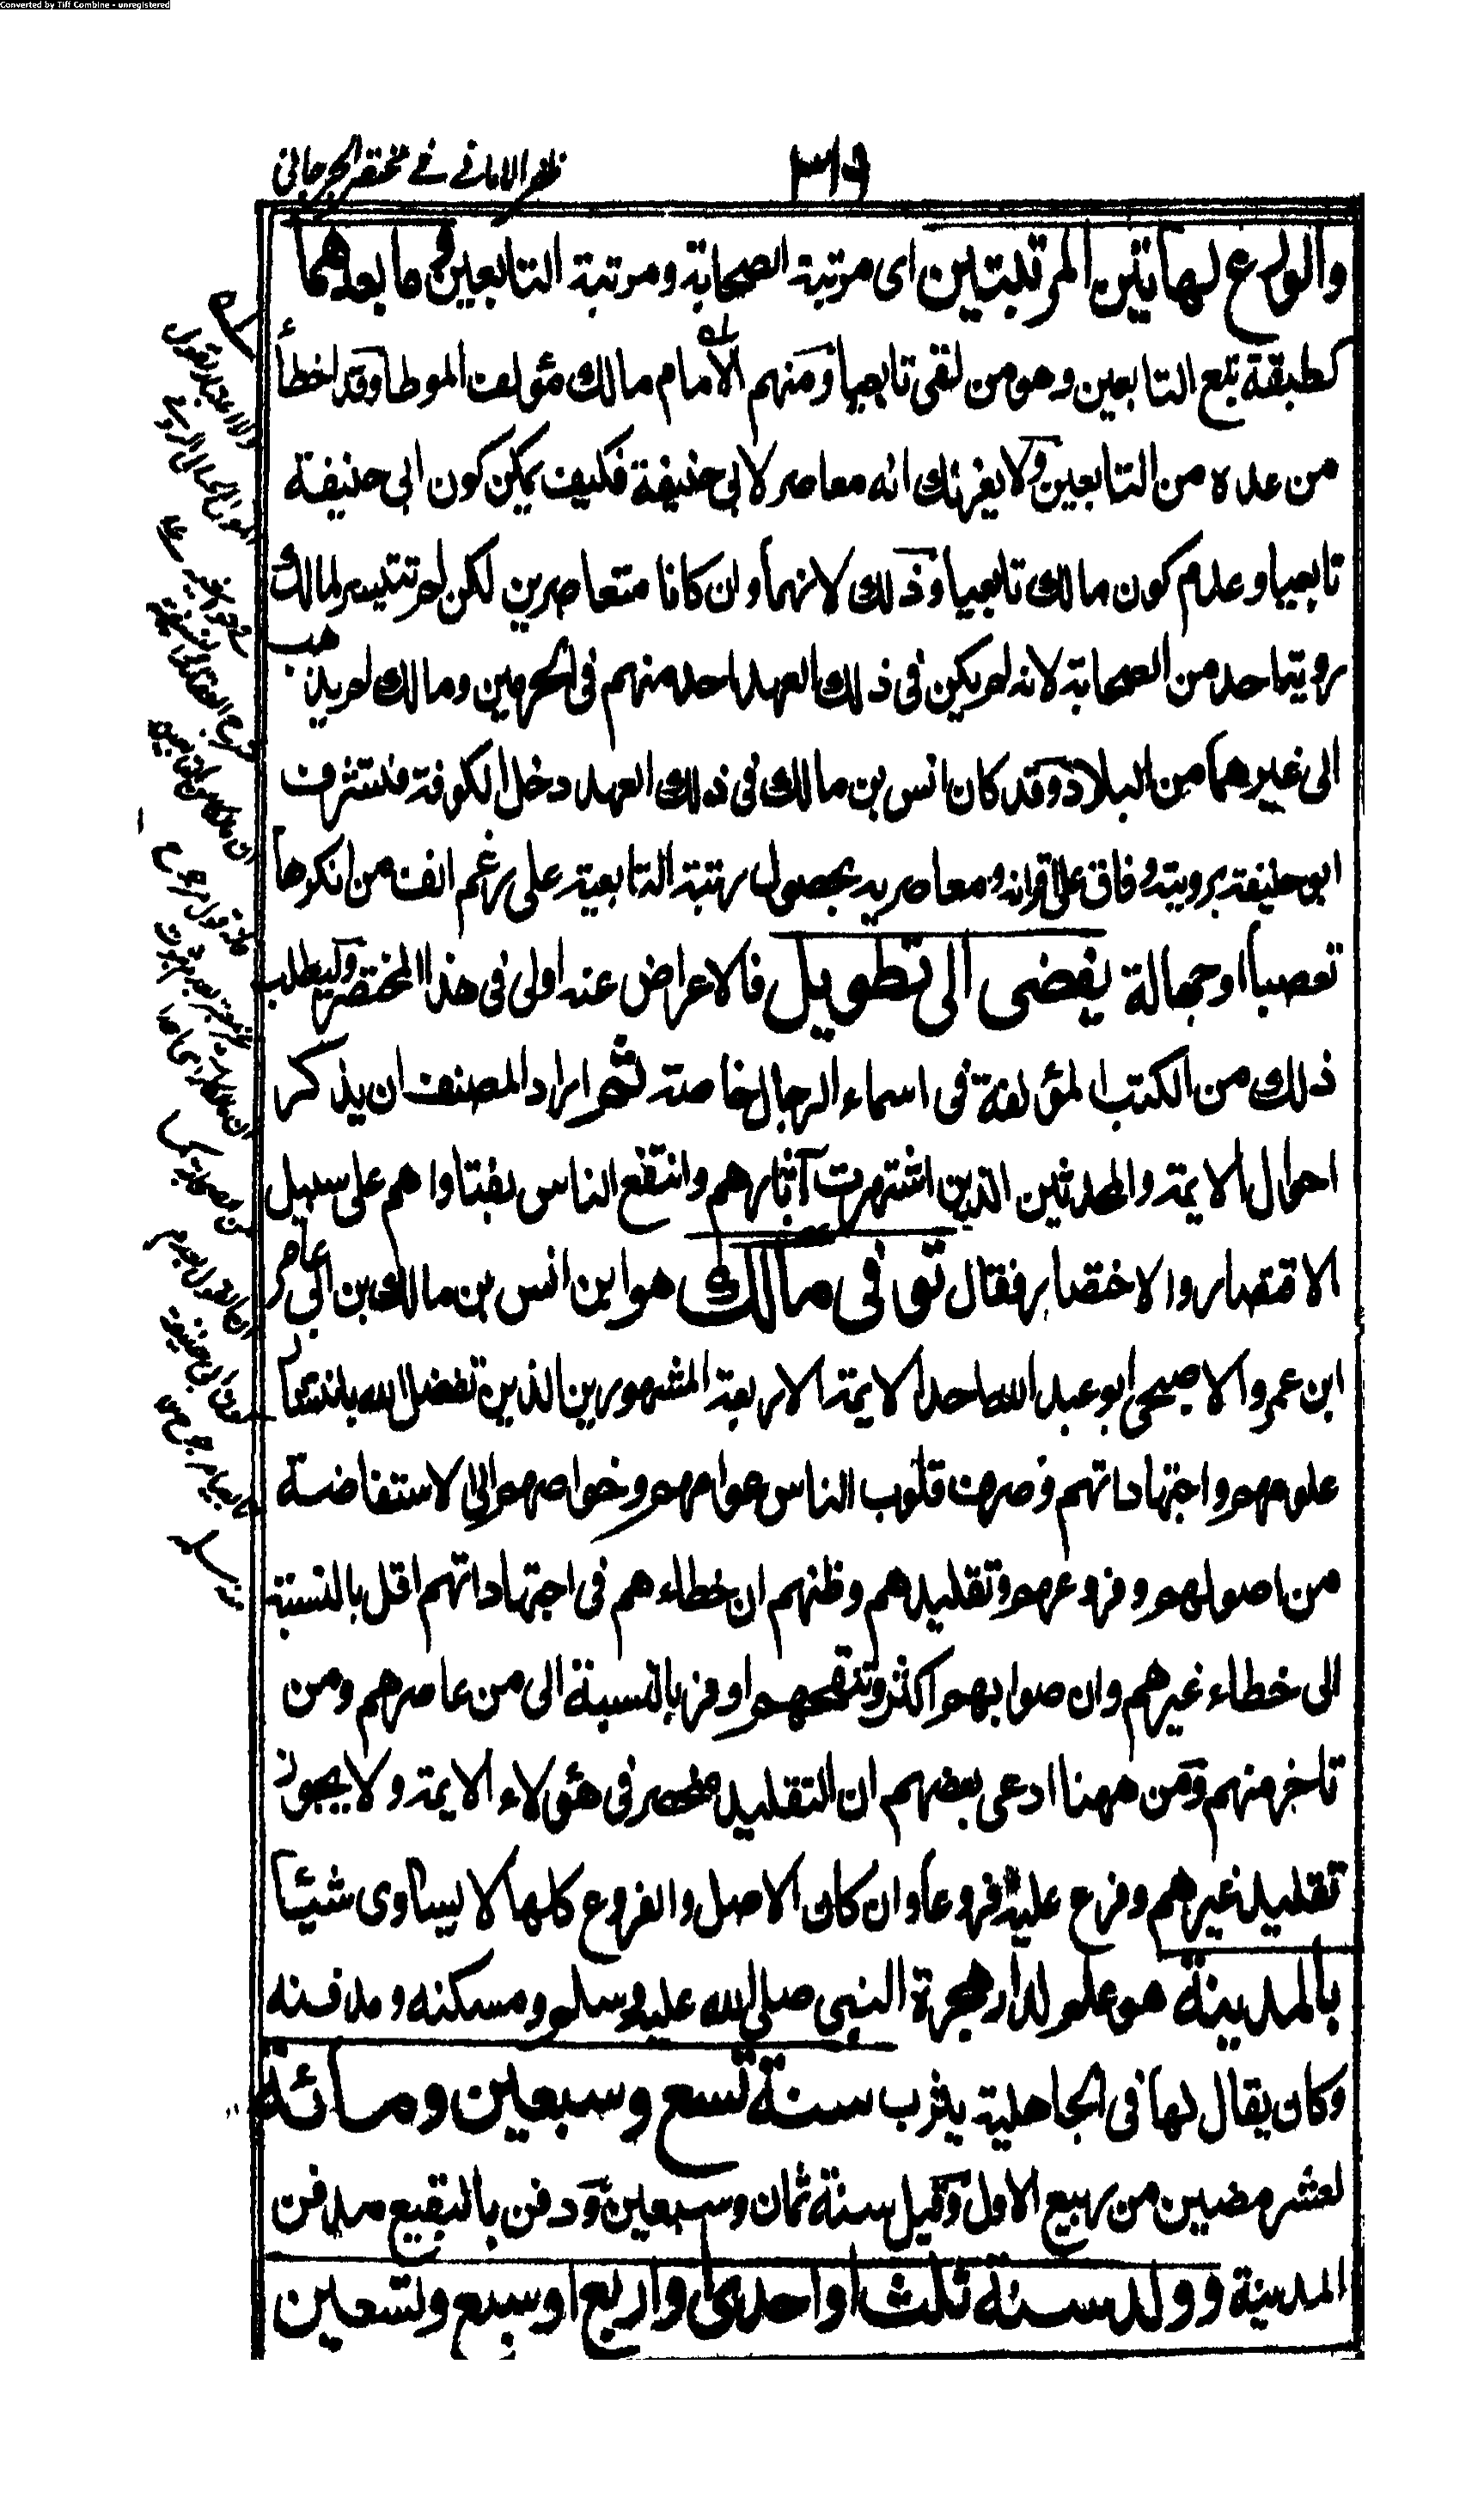 Converted by Tiff Combine - unregistered
٣١٦
ظفر الامانے فے مختصر الجرجانی
والولوع لهاتین المرتبتین ای مرتبة الصحابة ومرتبة التابعین وما بعدهما
کطبقة تبع التابعین وهو من لقی تابعیا ومنهم الامام مالك مؤلف الموطا وقد اخطأ
من عده من التابعین ولا یغرنك انه معاصر لابی حنیفة فکیف یمکن کون ابی حنیفة
تابعیا وعدم کون مالك تابعیا وذلك لانهما وان کانا متعاصرین لکن لم تتیسر لمالك
رویة احد من الصحابة لانه لم یکن فی ذلك العهد احد منهم فی الحرمین ومالك لم یذهب
الی غیرهما من البلاد وقد کان انس بن مالك فی ذلك العهد دخل الکوفة فتشرف
ابو حنیفة برویته وفاق علی اقرانه ومعاصریه بحصول رتبة التابعیة علی رغم انف من انکرها
تعصبا او جهالة یفضی الی تطویل فالاعراض عنه اولی فی هذا المختصر ولیطلب
ذلك من الکتب المؤلفة فی اسماء الرجال خاصة ثم اراد المصنف ان یذکر
احوال الایمة والمحدثین الذین اشتهرت آثارهم وانتفع الناس بفتاواهم علی سبیل
الاقتصار والاختصار فقال توفی مالك هو ابن انس بن مالك بن ابی عامر
ابن عمرو الاصبحی ابو عبد الله احد الایمة الاربعة المشهورین الذین تفضل الله بانتشار
علومهم واجتهاداتهم وصرف قلوب الناس عوامهم وخواصهم الی الاستفاضة
من اصولهم وفروعهم وتقلیدهم وظنهم ان خطاءهم فی اجتهاداتهم اقل بالنسبة
الی خطاء غیرهم وان صوابهم اکثر وتنقحهم اوفر بالنسبة الی من عاصرهم ومن
تاخر منهم ومن ههنا ادعی بعضهم ان التقلید منحصر فی هؤلاء الایمة ولا یجوز
تقلید غیرهم وفرع علیه فروعا وان کان الاصل والفروع کلها لا یساوی شیئا
بالمدینة هو علم لدار هجرة النبی صلی الله علیه وسلم ومسکنه ومدفنه
وکان یقال لها فی الجاهلیة یثرب سنة تسع وسبعین ومائة
لعشر مضین من ربیع الاول وقیل سنة ثمان وسبعین ودفن بالبقیع مدفن
المدینة وولد سنة ثلث او احدی او اربع او سبع وتسعین